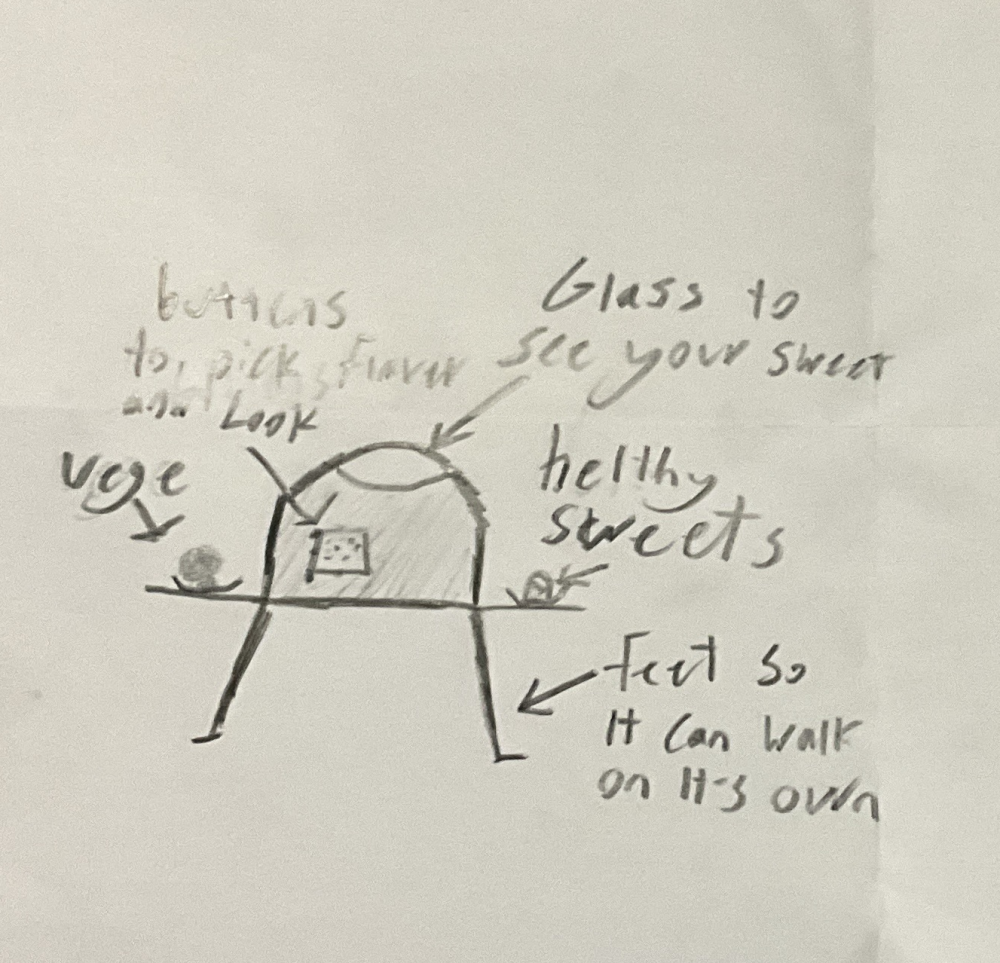 buttons
to pick flaver
and Look
Glass to
see your sweet
vege
helthy
sweets
feet so
It can walk
on It's own